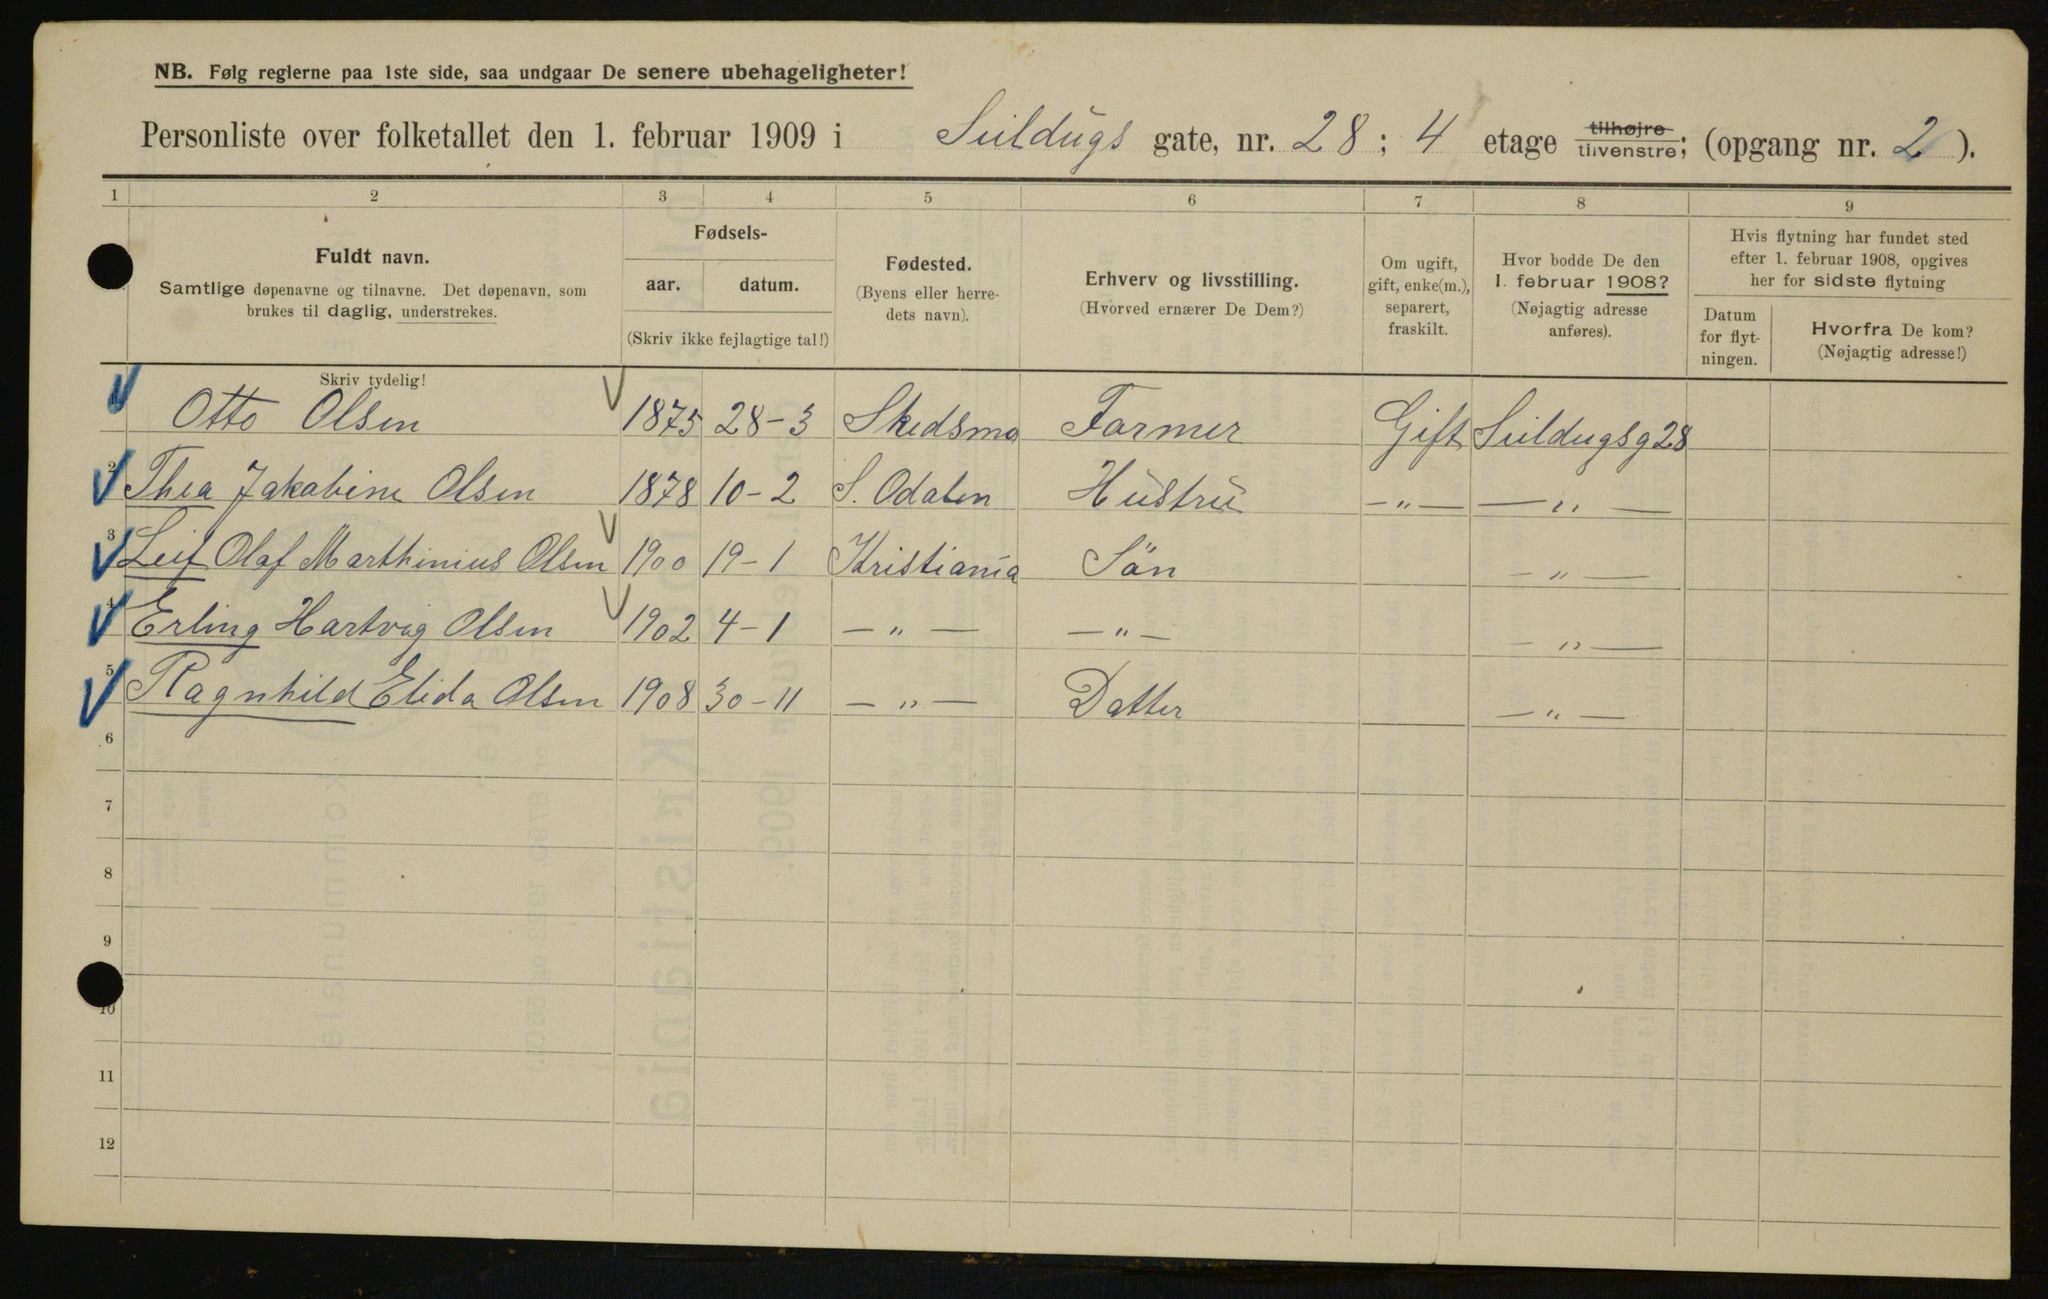 NB. Følg reglerne paa 1ste side, saa undgaar De senere ubehageligheter!
Personliste over folketallet den 1. februar 1909 i Suldugs gate, nr. 28; 4 etage tilhøjre tilvenstre; (opgang nr. 2).
1 2 3 4 5 6 7 8 9
Fuldt navn.
Samtlige døpenavne og tilnavne. Det døpenavn, som
brukes til daglig, understrekes.
Skriv tydelig!
Fødsels-
aar. datum.
(Skriv ikke fejlagtige tal!)
Fødested.
(Byens eller herre-
dets navn).
Erhverv og livsstilling.
(Hvorved ernærer De Dem?)
Om ugift,
gift, enke(m.),
separert,
fraskilt.
Hvor bodde De den
1. februar 1908?
(Nøjagtig adresse
anføres).
Hvis flytning har fundet sted
efter 1. februar 1908, opgives
her for sidste flytning
Datum
for flyt-
ningen.
Hvorfra De kom?
(Nøjagtig adresse!)
Otto Olsen 1875 28-3 Skedsmo Former Gift Suldugsg 28
2 Thea Jakobine Olsen 1878 10-2 S. Odalen Hustru -"- -"-
3 Leif Olaf Marthinius Olsen 1900 19-1 Kristiania Sön -"-
4 Erling Hartvig Olsen 1902 4-1 -"- -"- -"-
5 Ragnhild Elida Olsen 1908 30-11 -"- Datter -"-
6
7
8
9
10
11
12